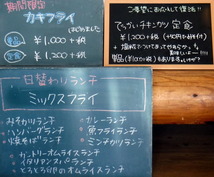 期間限定
カキフライ
はじめました
単品 ¥1,000+税
定食 ¥1,200+税
ご要望にお応えして復活!!
でっかいチキンカツ定食
¥1,200+税
日替わりランチ
ミックスフライ
・みそカツランチ
・ハンバーグランチ
・焼そばランチ
・カレーランチ
・魚フライランチ
・ミンチカツランチ
・カントリーオムライスランチ
・イタリアンスパランチ
・とろとろ卵のオムライスランチ